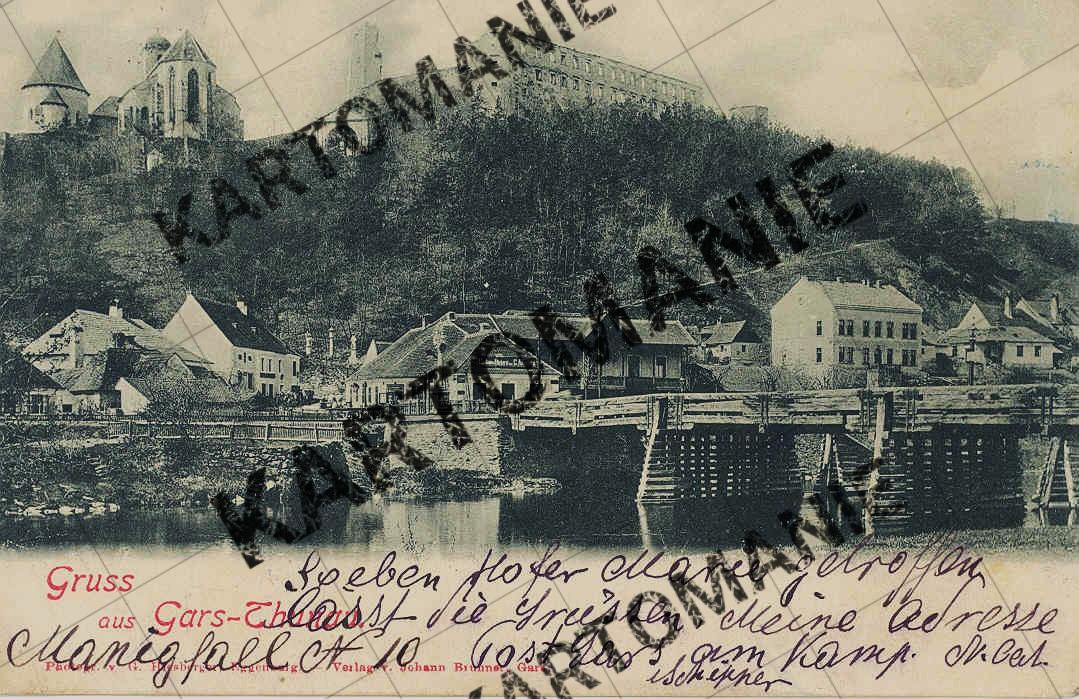 KARTOMANIE
KARTOMANIE
KARTOMANIE
KARTOMANIE
Gruss
aus Gars-Thunau.
Soeben Hofer Marie getroffen
lasst die Grüssen Meine Adresse
Manigfall № 10 Post Gars am Kamp. N. Oest
Photogr. v. G. Hiesberger, Eggenburg. – Verlag v. Johann Brunner, Gars